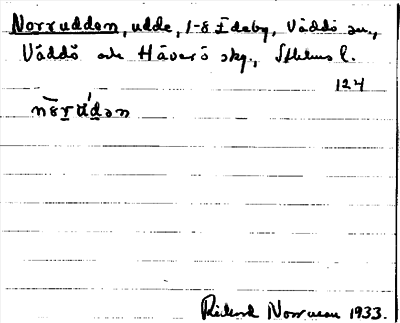 Norrudden, udde, 1-8 Edeby, Väddö sn.,
Väddö och Häverö skg., Sthlms l.
124
nor̄ùdən
Rickard Norrman 1933.